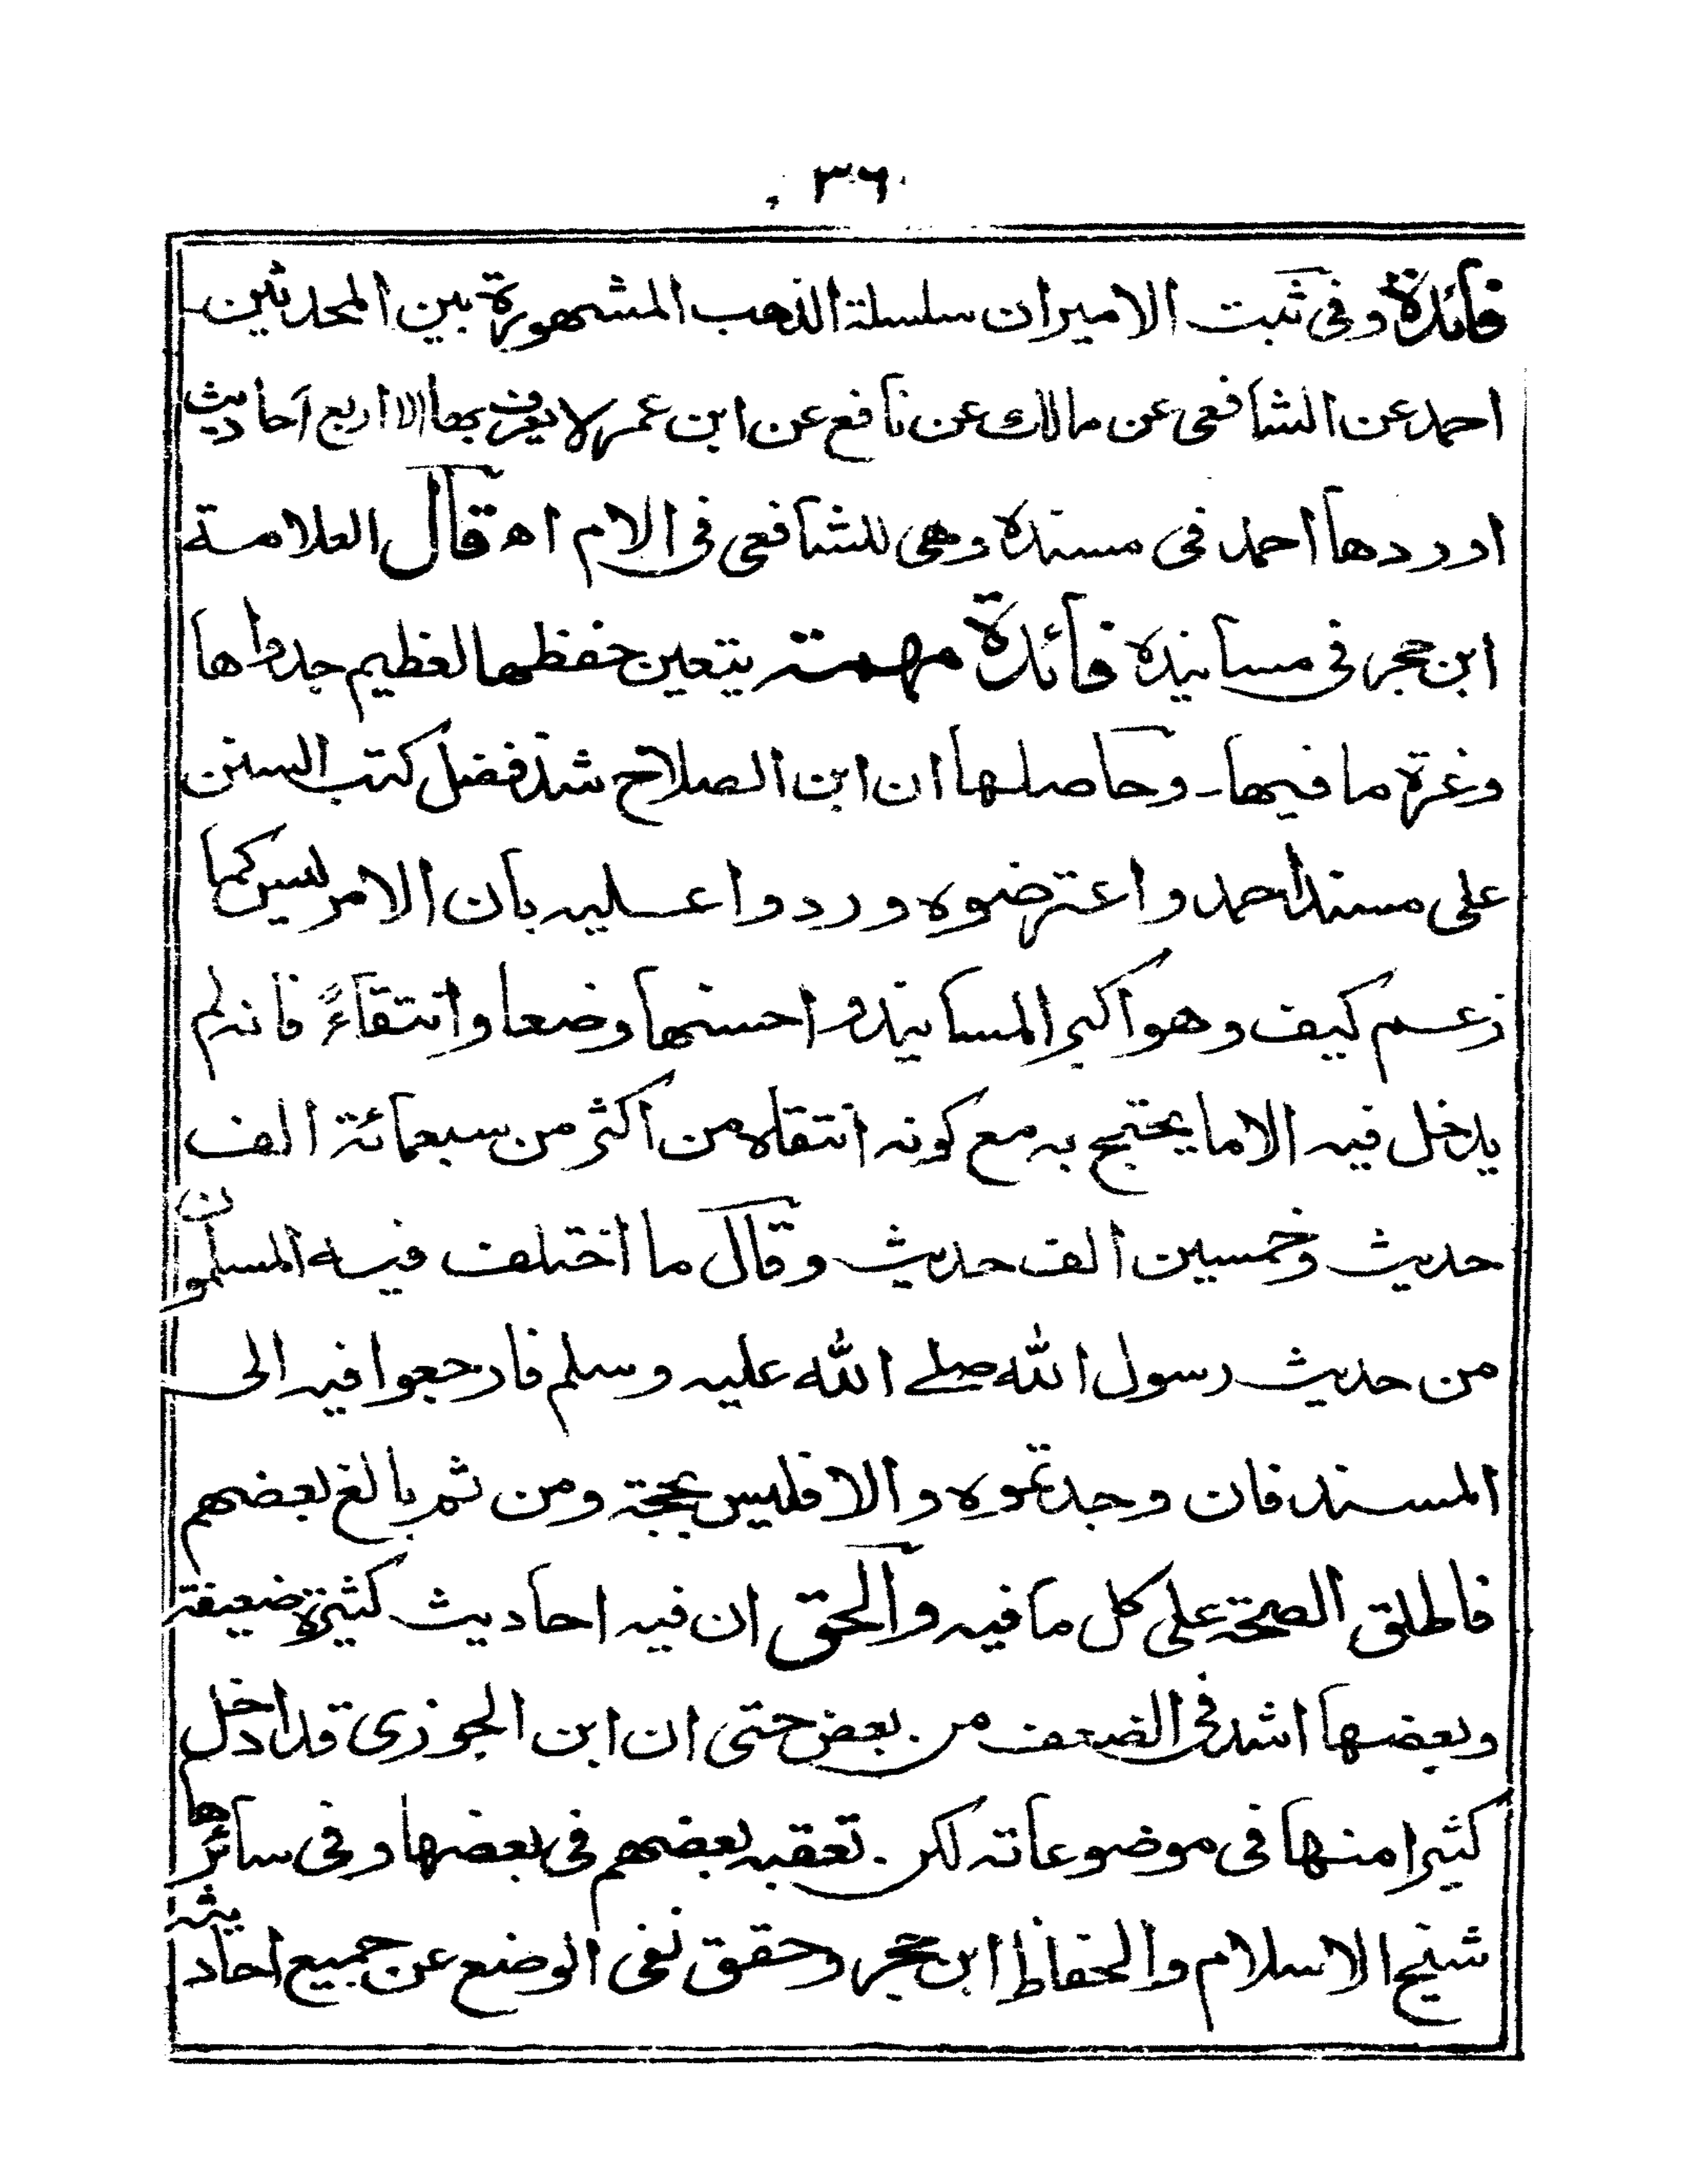 ٣٦
فائدة وفى ثبت الامير ان سلسلة الذهب المشهورة بين المحدثين
احمد عن الشافعى عن مالك عن نافع عن ابن عمر لا يعرف بها الا اربع احاديث
اوردها احمد فى مسنده وهى للشافعى فى الام اھ قال العلامة
ابن حجر فى مسانيده فائدة مهمة يتعين حفظها لعظيم جدواها
وغرة ما فيها- وحاصلها ان ابن الصلاح شذ ففضل كتب السنن
على مسند احمد واعترضوه وردوا عليه بان الامر ليس كما
زعم كيف وهو اكبر المسانيد واحسنها وضعا وانتقاءً فانه لم
يدخل فيه الا ما يحتج به مع كونه انتقاه من اكثر من سبعمائة الف
حديث وخمسين الف حديث وقال ما اختلف فيه المسلمون
من حديث رسول الله صلے الله عليه وسلم فارجعوا فيه الى
المسند فان وجدتموه والا فليس بحجة ومن ثم بالغ بعضهم
فاطلق الصحة على كل ما فيه والحق ان فيه احاديث كثيرة ضعيفة
وبعضها اشد فى الضعف من بعض حتى ان ابن الجوزى قد ادخل
كثيرا منها فى موضوعاته لكن تعقبه بعضهم فى بعضها وفى سائرها
شيخ الاسلام والحفاظ ابن حجر وحقق نفى الوضع عن جميع احاديثه